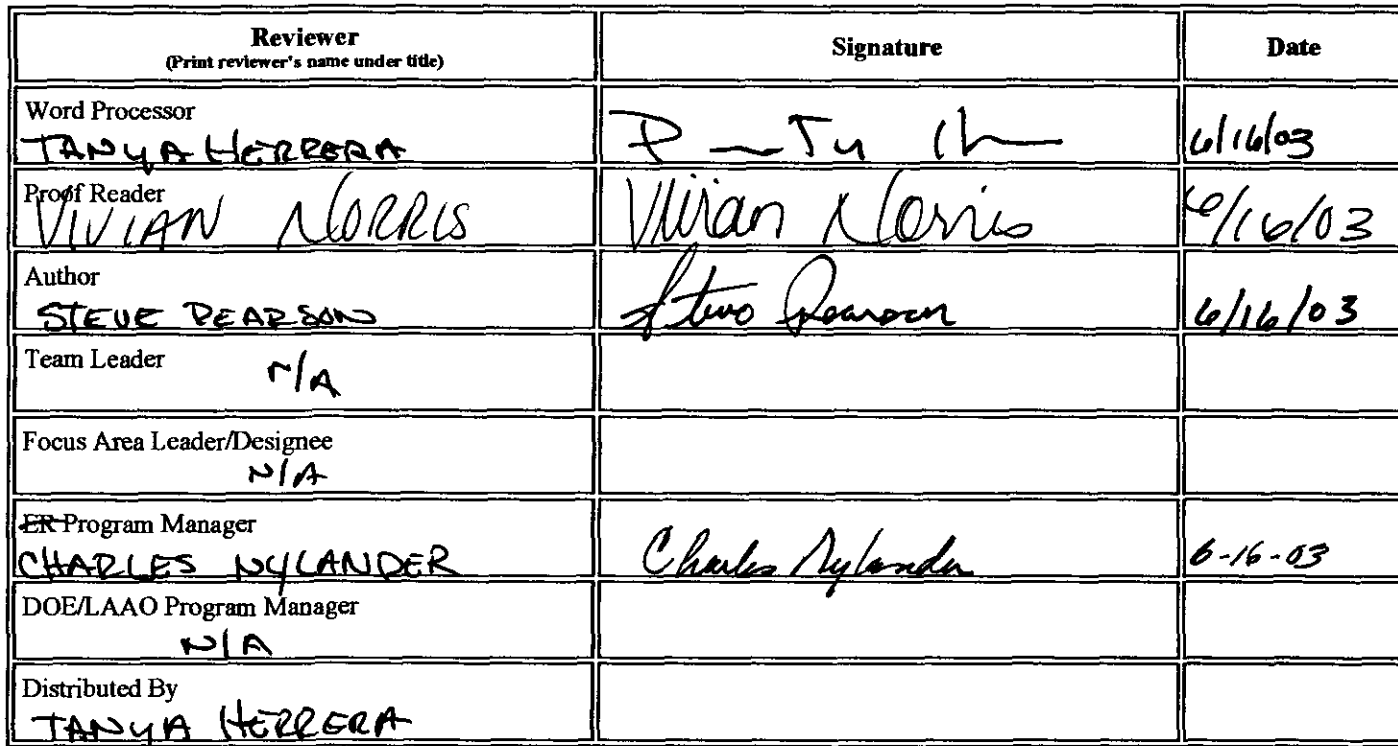 Reviewer Signature Date
(Print reviewer's name under title)
Word Processor
TANYA HERRERA 6/16/03
Proof Reader
VIVIAN NORRIS Vivian Norris 6/16/03
Author
STEVE PEARSON Steve Pearson 6/16/03
Team Leader
N/A
Focus Area Leader/Designee
N/A
ER Program Manager
CHARLES NYLANDER Charles Nylander 6-16-03
DOE/LAAO Program Manager
N/A
Distributed By
TANYA HERRERA